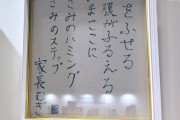 をふせる
腹がふるえる
まここに
さみのハミング
さみのステップ
家長むぎ